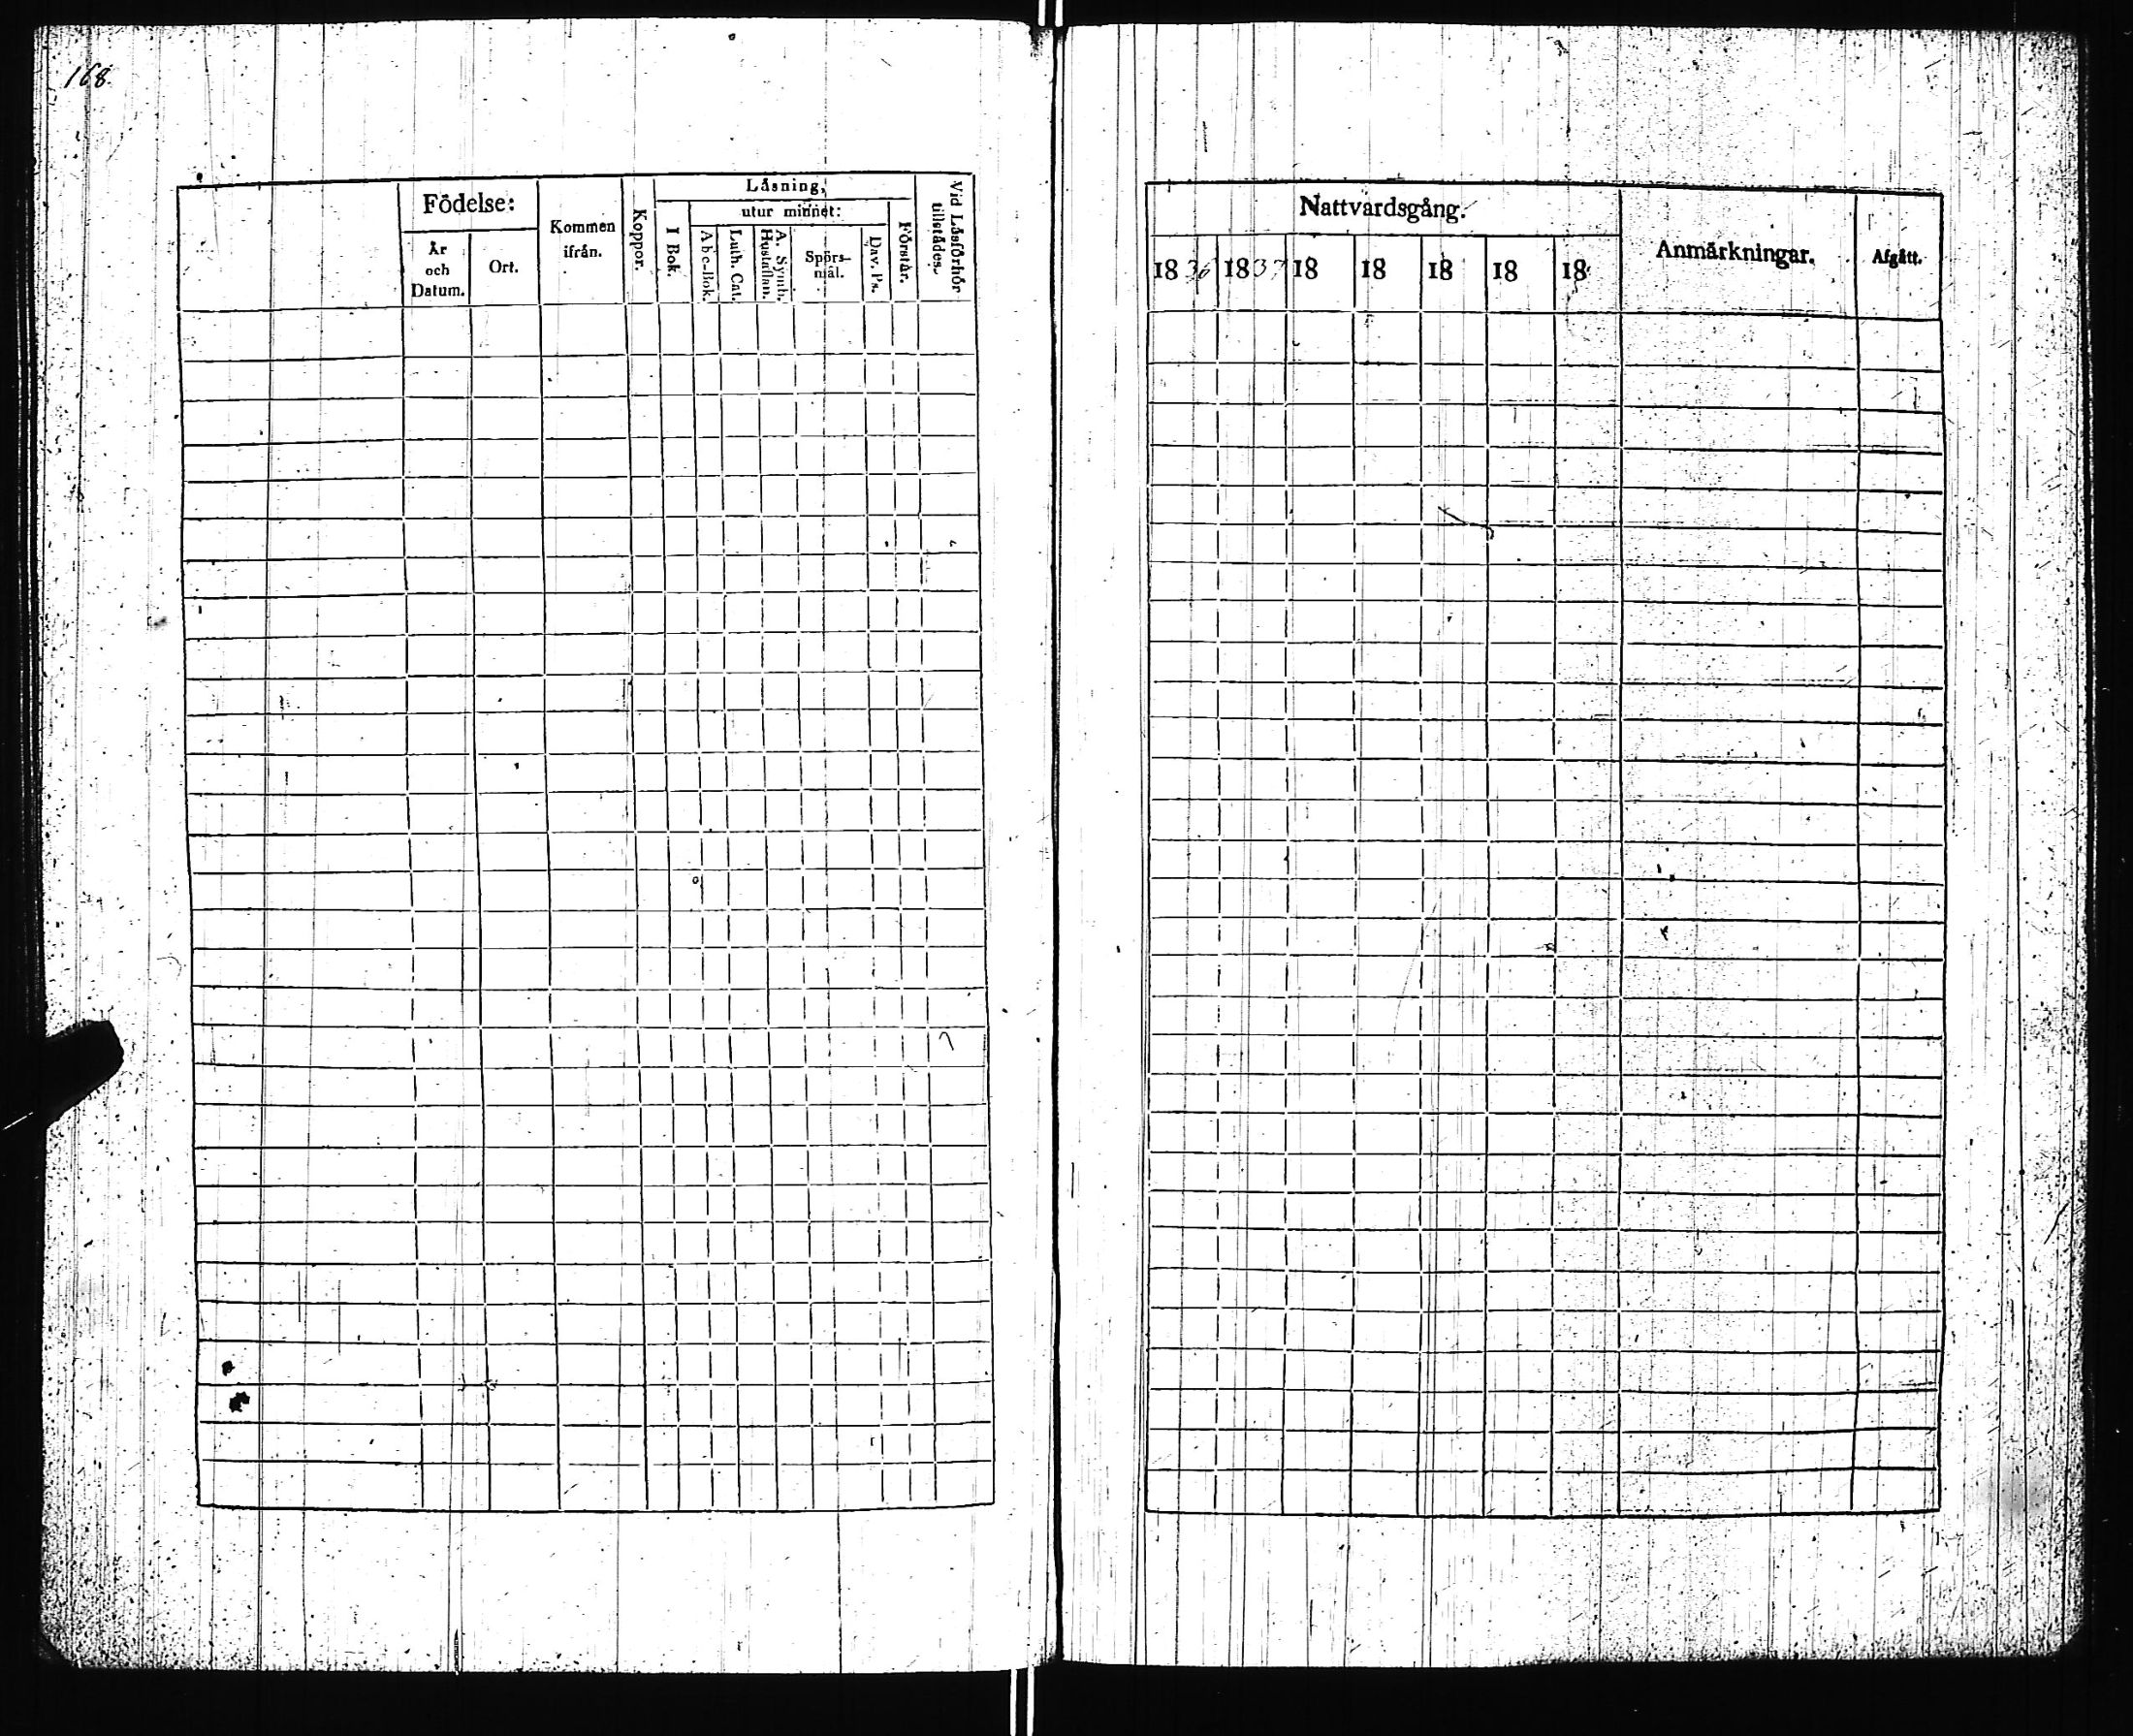 168.
Födelse:
År
och
Datum.
Ort.
Kommen
ifrån.
Koppor.
Låsning,
I Bok.
utur minnet:
Abc-Bok.
Luth. Cat.
A. Symb.
Hustaflan.
Spörs-
mål.
Dav. Ps.
Förstår.
Vid Låsförhör
tillstådes.
Nattvardsgång.
1836 1837 18 18 18 18 18
Anmårkningar.
Afgått.